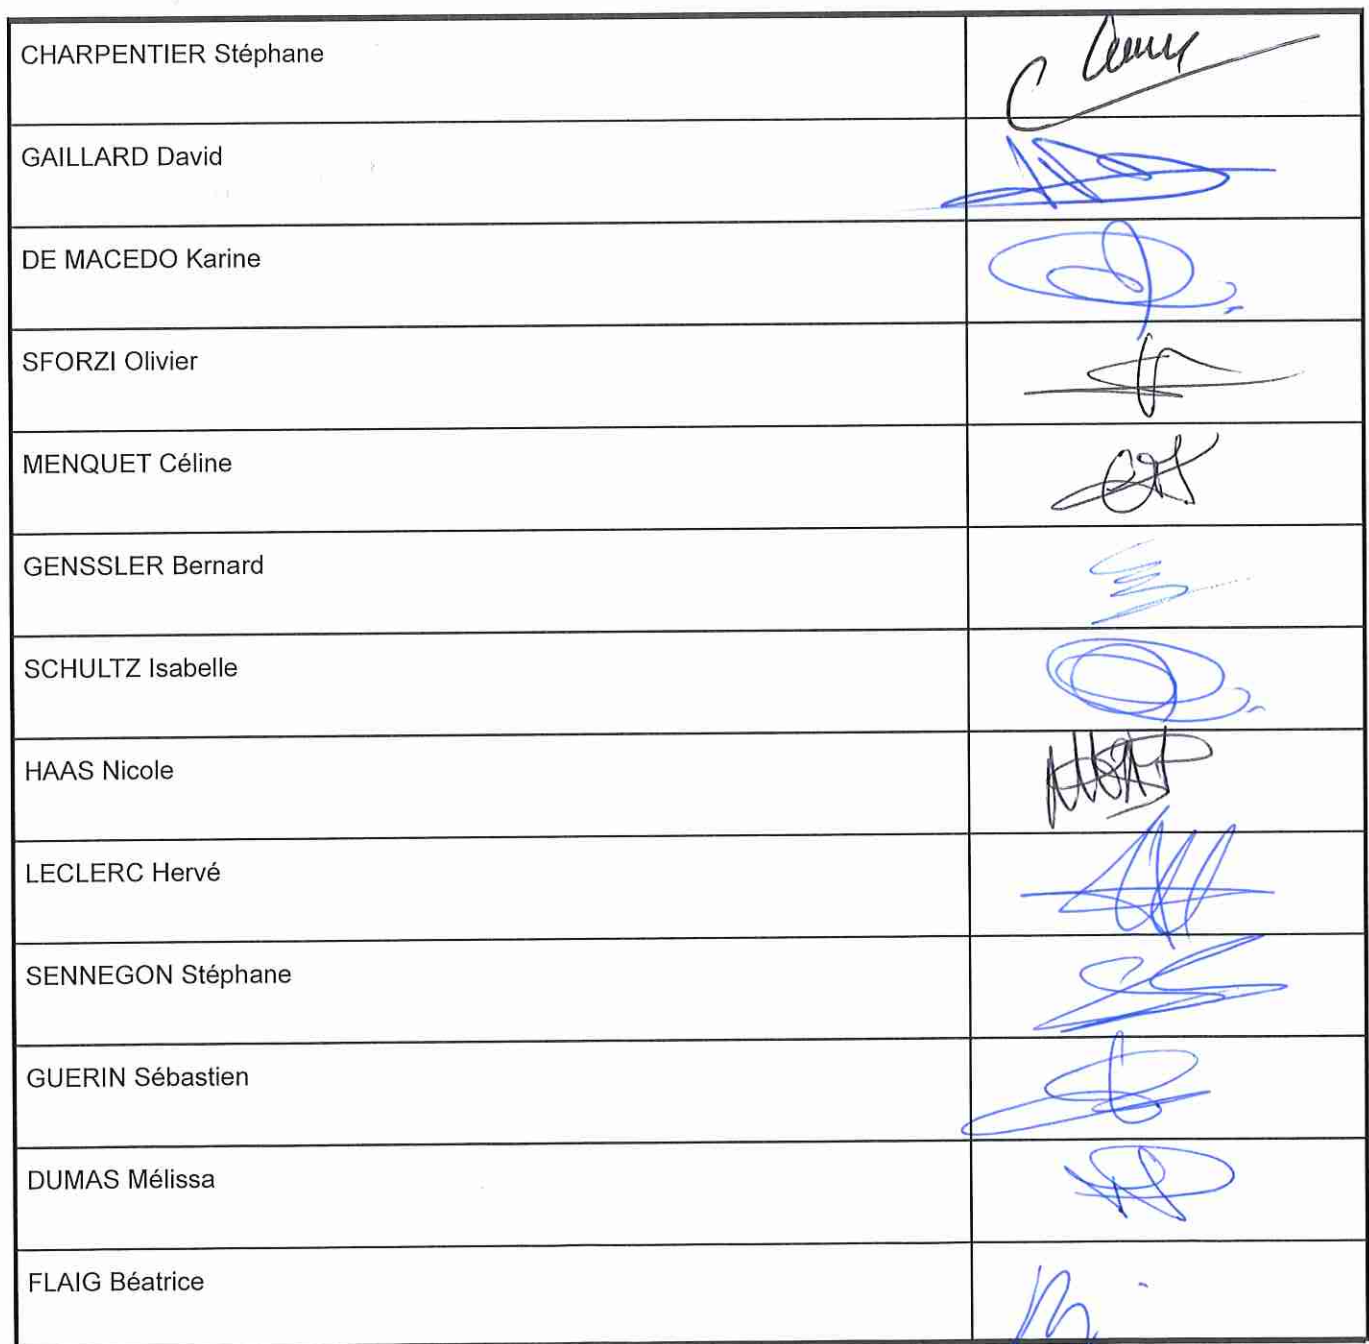 CHARPENTIER Stéphane
GAILLARD David
DE MACEDO Karine
SFORZI Olivier
MENQUET Céline
GENSSLER Bernard
SCHULTZ Isabelle
HAAS Nicole
LECLERC Hervé
SENNEGON Stéphane
GUERIN Sébastien
DUMAS Mélissa
FLAIG Béatrice